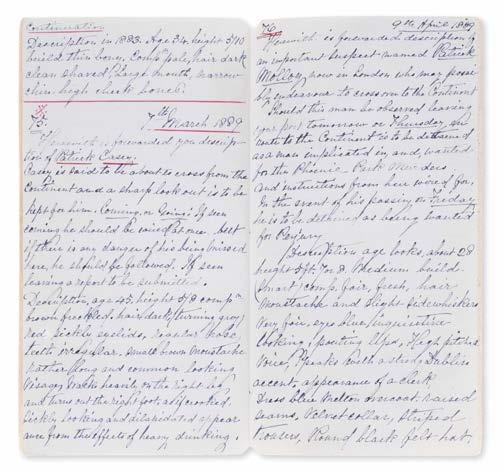 Continuation
Description in 1883. Age 34, height 5/10
build thin bony, Compn pale, hair dark
clean shaved, large mouth, narrow
chin, high cheek bones.
75. 7th March 1889
Herewith is forwarded you descrip-
tion of Patrick Casey.
Casey is said to be about to cross from the
Continent and a sharp look out is to be
kept for him. Coming, or Going. If seen
coming he should be wired at once. but
if there is any danger of his being missed
here, he should be followed. If seen
leaving a report to be submitted.
Description, age 45, height 5/8 compn
brown freckled, hair dark, turning grey
red sickly eyelids, regular nose,
teeth irregular. small brown moustache
rather long and common looking
visage, walks heavily on the right leg
and turns out the right foot, as if crooked.
Sickly looking and dilapidated appear
ance from the effects of heavy drinking.
76. 9th April, 1889
Herewith is forwarded description of
an important suspect named Patrick
Molloy, now in London who may possi
bly endeavour to cross over to the Continent
Should this man be observed leaving
your port tomorrow or Thursday, en
route to the Continent is to be detained
as a man implicated in, and, wanted
for the Phoenix Park Murders
and instructions from here wired for.
In the event of his passing on Friday
he is to be detained as being wanted
for Perjury
Description, age looks, about 28
height 5ft 7 or 8. Medium build
smart, comp. fair, fresh, hair
Moustache and slight sidewhiskers
very fair, eyes blue, inquisitive
looking, pouting lips, High pitched
voice, speaks with a strong Dublin
accent, appearance of a clerk
Dress blue Melton overcoat, raised
seams, velvet collar, striped
trousers, Round black felt hat.